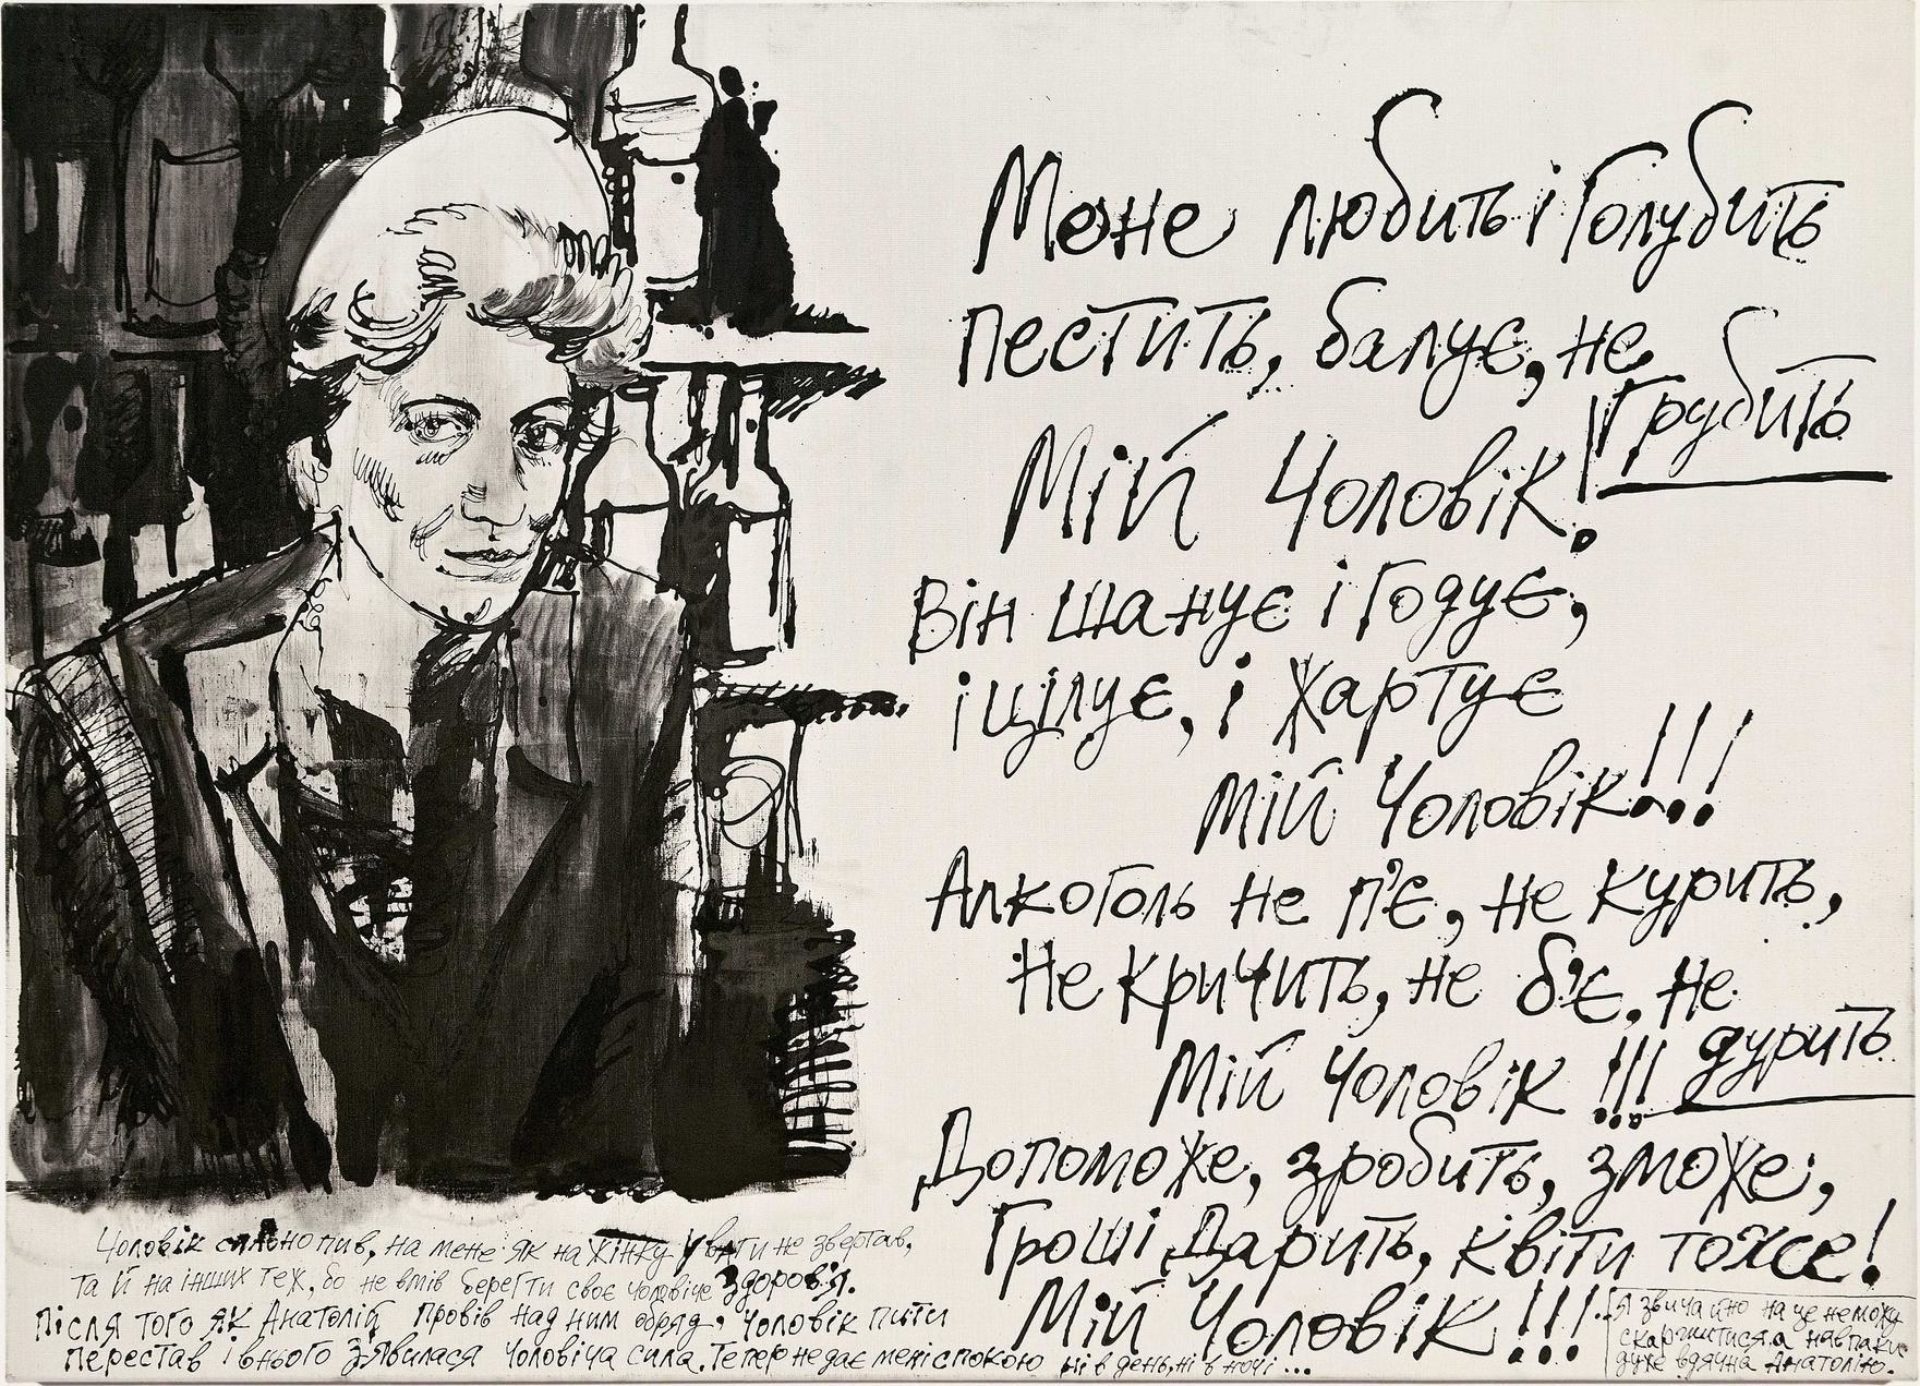 Мене любить і Голубить
пестить, балує, не
Грубить
Мій Чоловік!
Він шанує і Годує,
і цілує, і Жартує
Мій Чоловік!!!
Алкоголь не п'є, не курить,
Не кричить, не б'є, не
дурить
Мій Чоловік!!!
Допоможе, зробить, зможе,
Гроші Дарить, квіти тоже!
Мій Чоловік!!!
Чоловік сильно пив, на мене як на жінку Уваги не звертав,
та й на інших теж, бо не вмів берегти своє чоловіче здоров'я.
Після того як Анатолій провів над ним обряд, чоловік пити
перестав і в нього З'явилася чоловіча сила. Тепер не дає мені спокою ні в день, ні в ночі...
Я звичайно на це не можу
скаржитися, а навпаки
дуже вдячна Анатолію.